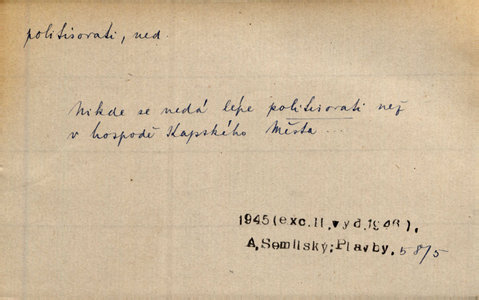 politisovati, ned.
Nikde se nedá lépe politisovati než
v hospodě Kapského Města ...
1945 (exc. II. vyd. 1946),
A. Semliský: Plavby, 58/5